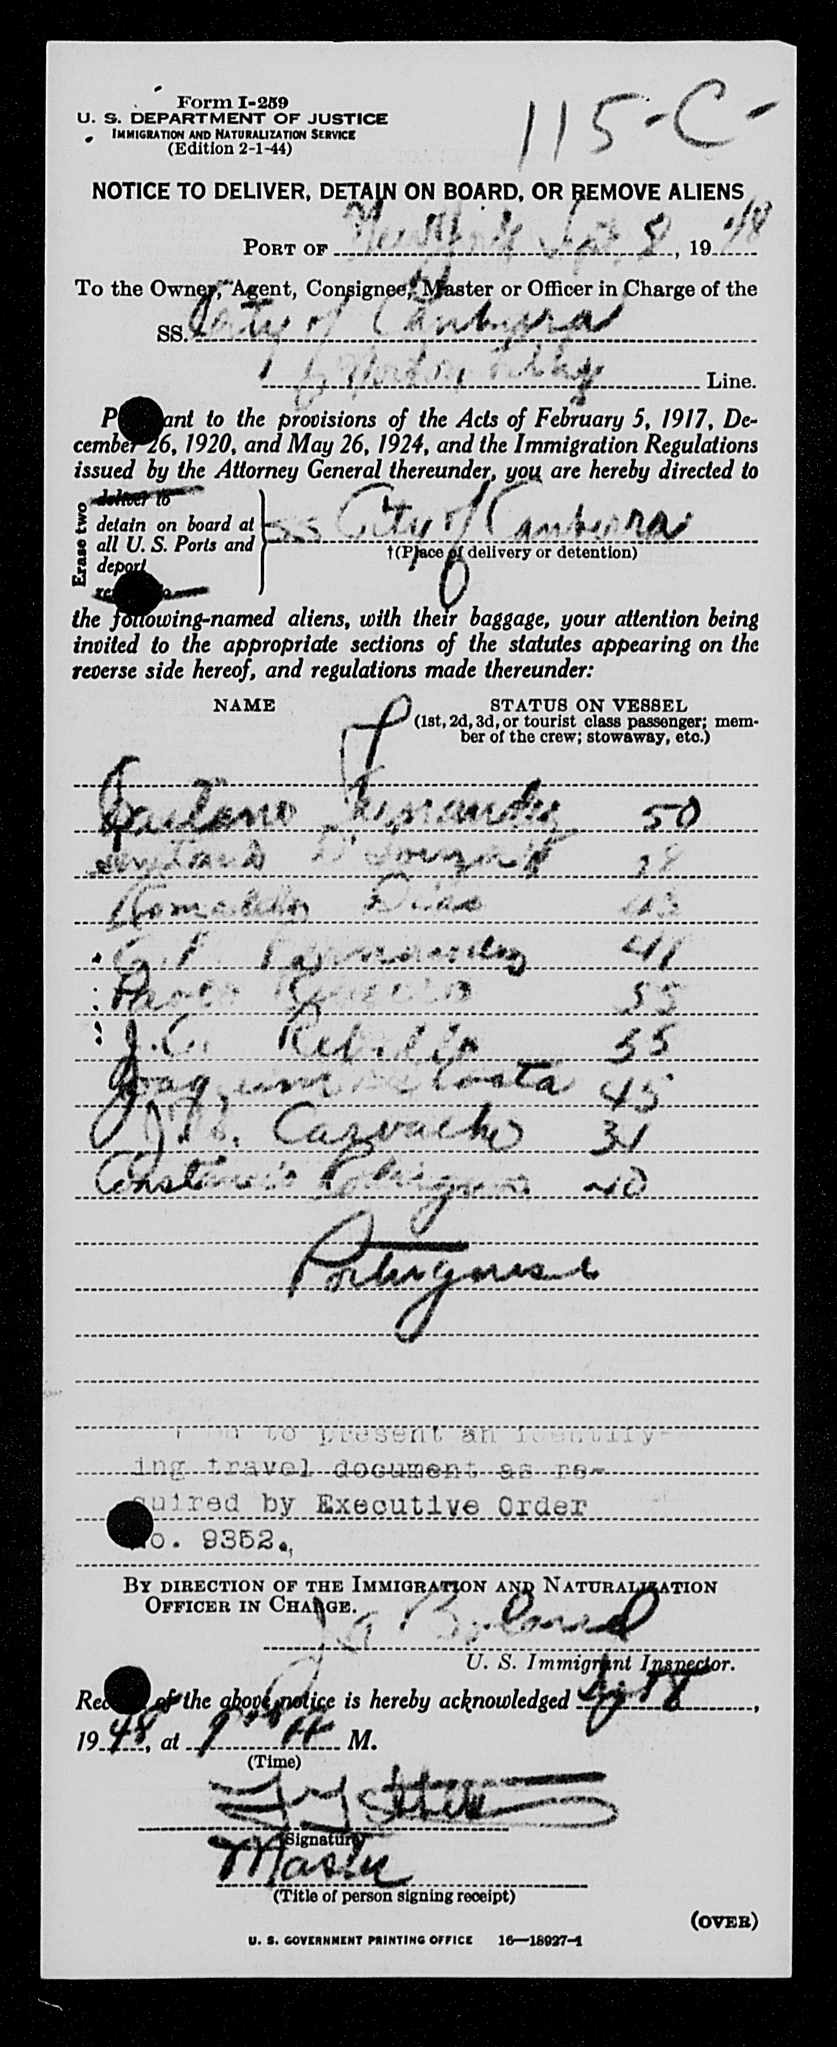 Form I-259
115-C-
U. S. DEPARTMENT OF JUSTICE
IMMIGRATION AND NATURALIZATION SERVICE
(Edition 2-1-44)
NOTICE TO DELIVER, DETAIN ON BOARD, OR REMOVE ALIENS
PORT OF New York Sept 8, 1948
To the Owner, Agent, Consignee, Master or Officer in Charge of the
SS. City of Canberra
Norton Lilly Line.
Pursuant to the provisions of the Acts of February 5, 1917, De-
cember 26, 1920, and May 26, 1924, and the Immigration Regulations
issued by the Attorney General thereunder, you are hereby directed to
Erase two
deliver to
detain on board at
all U. S. Ports and
deport
SS City of Canberra
†(Place of delivery or detention)
the following-named aliens, with their baggage, your attention being
invited to the appropriate sections of the statutes appearing on the
reverse side hereof, and regulations made thereunder:
NAME
STATUS ON VESSEL
(1st, 2d, 3d, or tourist class passenger; mem-
ber of the crew; stowaway, etc.)
Caetano Fernandez 50
D'Souza
Dias 43
Fernandez 41
55
J.C. Rebello 55
Joaquim Costa 45
Carvalho 31
Rodrigues 40
Portuguese
to present an identify-
ing travel document as re-
quired by Executive Order
No. 9352.
BY DIRECTION OF THE IMMIGRATION AND NATURALIZATION
OFFICER IN CHARGE.
U. S. Immigrant Inspector.
Receipt of the above notice is hereby acknowledged
1948, at M.
(Time)
(Signature)
Master
(Title of person signing receipt)
(OVER)
U. S. GOVERNMENT PRINTING OFFICE 16—18927-1